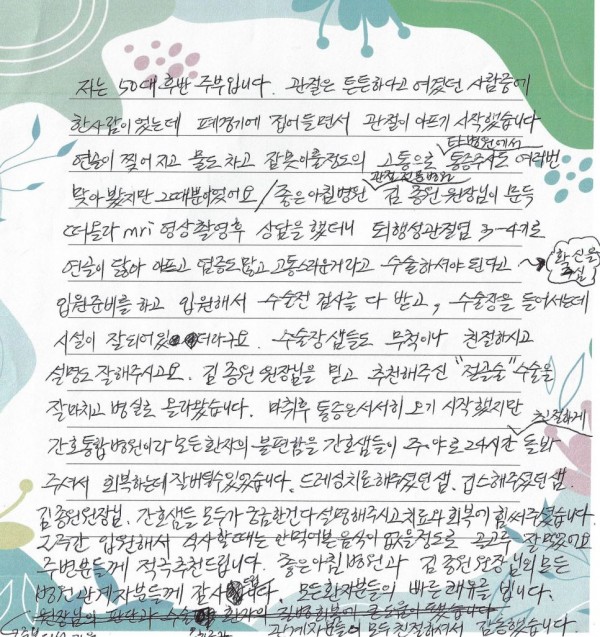 저는 50대 후반 주부입니다. 관절은 튼튼하다고 여겼던 사람중에
한사람이었는데 폐경기에 접어들면서 관절이 아프기 시작했습니다
연골이 찢어지고 물도차고 잠못이룰정도의 고통으로 타병원에서 통증주사도 여러번
맞아봤지만 그때뿐이었어요/좋은아침병원 관절전문병원 김종원 원장님이 문득
떠올라 mri 영상촬영후 상담을 했더니 퇴행성관절염 3-4기로
연골이 닳아 아프고 염증도많고 고통스러운거라고 수술하셔야 된다고 확신을 주심
입원준비를 하고 입원해서 수술전 검사를 다 받고, 수술장을 들어서는데
시설이 잘되어있더라구요. 수술장샘들도 무척이나 친절하시고
설명도 잘해주시고요. 김종원 원장님을 믿고 추천해주신 "절골술" 수술을
잘마치고 병실로 올라왔습니다. 마취후 통증은서서히 오기 시작했지만
간호통합병원이라 모든환자의 불편함을 간호샘들이 주·야로24시간 친절하게 돌봐
주셔서 회복하는데 잘버틸수있었습니다. 드레싱치료해주셨던샘. 깁스해주셨던샘.
김종원원장님. 간호샘들 모두가 궁금한건다설명해주시고치료와 회복에 힘써주셨습니다.
2주간 입원해서 식사할때는 안먹어본음식이 없을정도로 골고루 잘먹었어요
주변분들께 적극추천드립니다. 좋은아침병원과 김종원원장님외모든
병원관계자분들께 감사합니다. 모든환자분들의 빠른쾌유를 빕니다.
원장님의 판단과 수술 환자의 질병회복에 큰도움이됐습니다
관계자분들이 모두친절하셔서 감동했습니다.